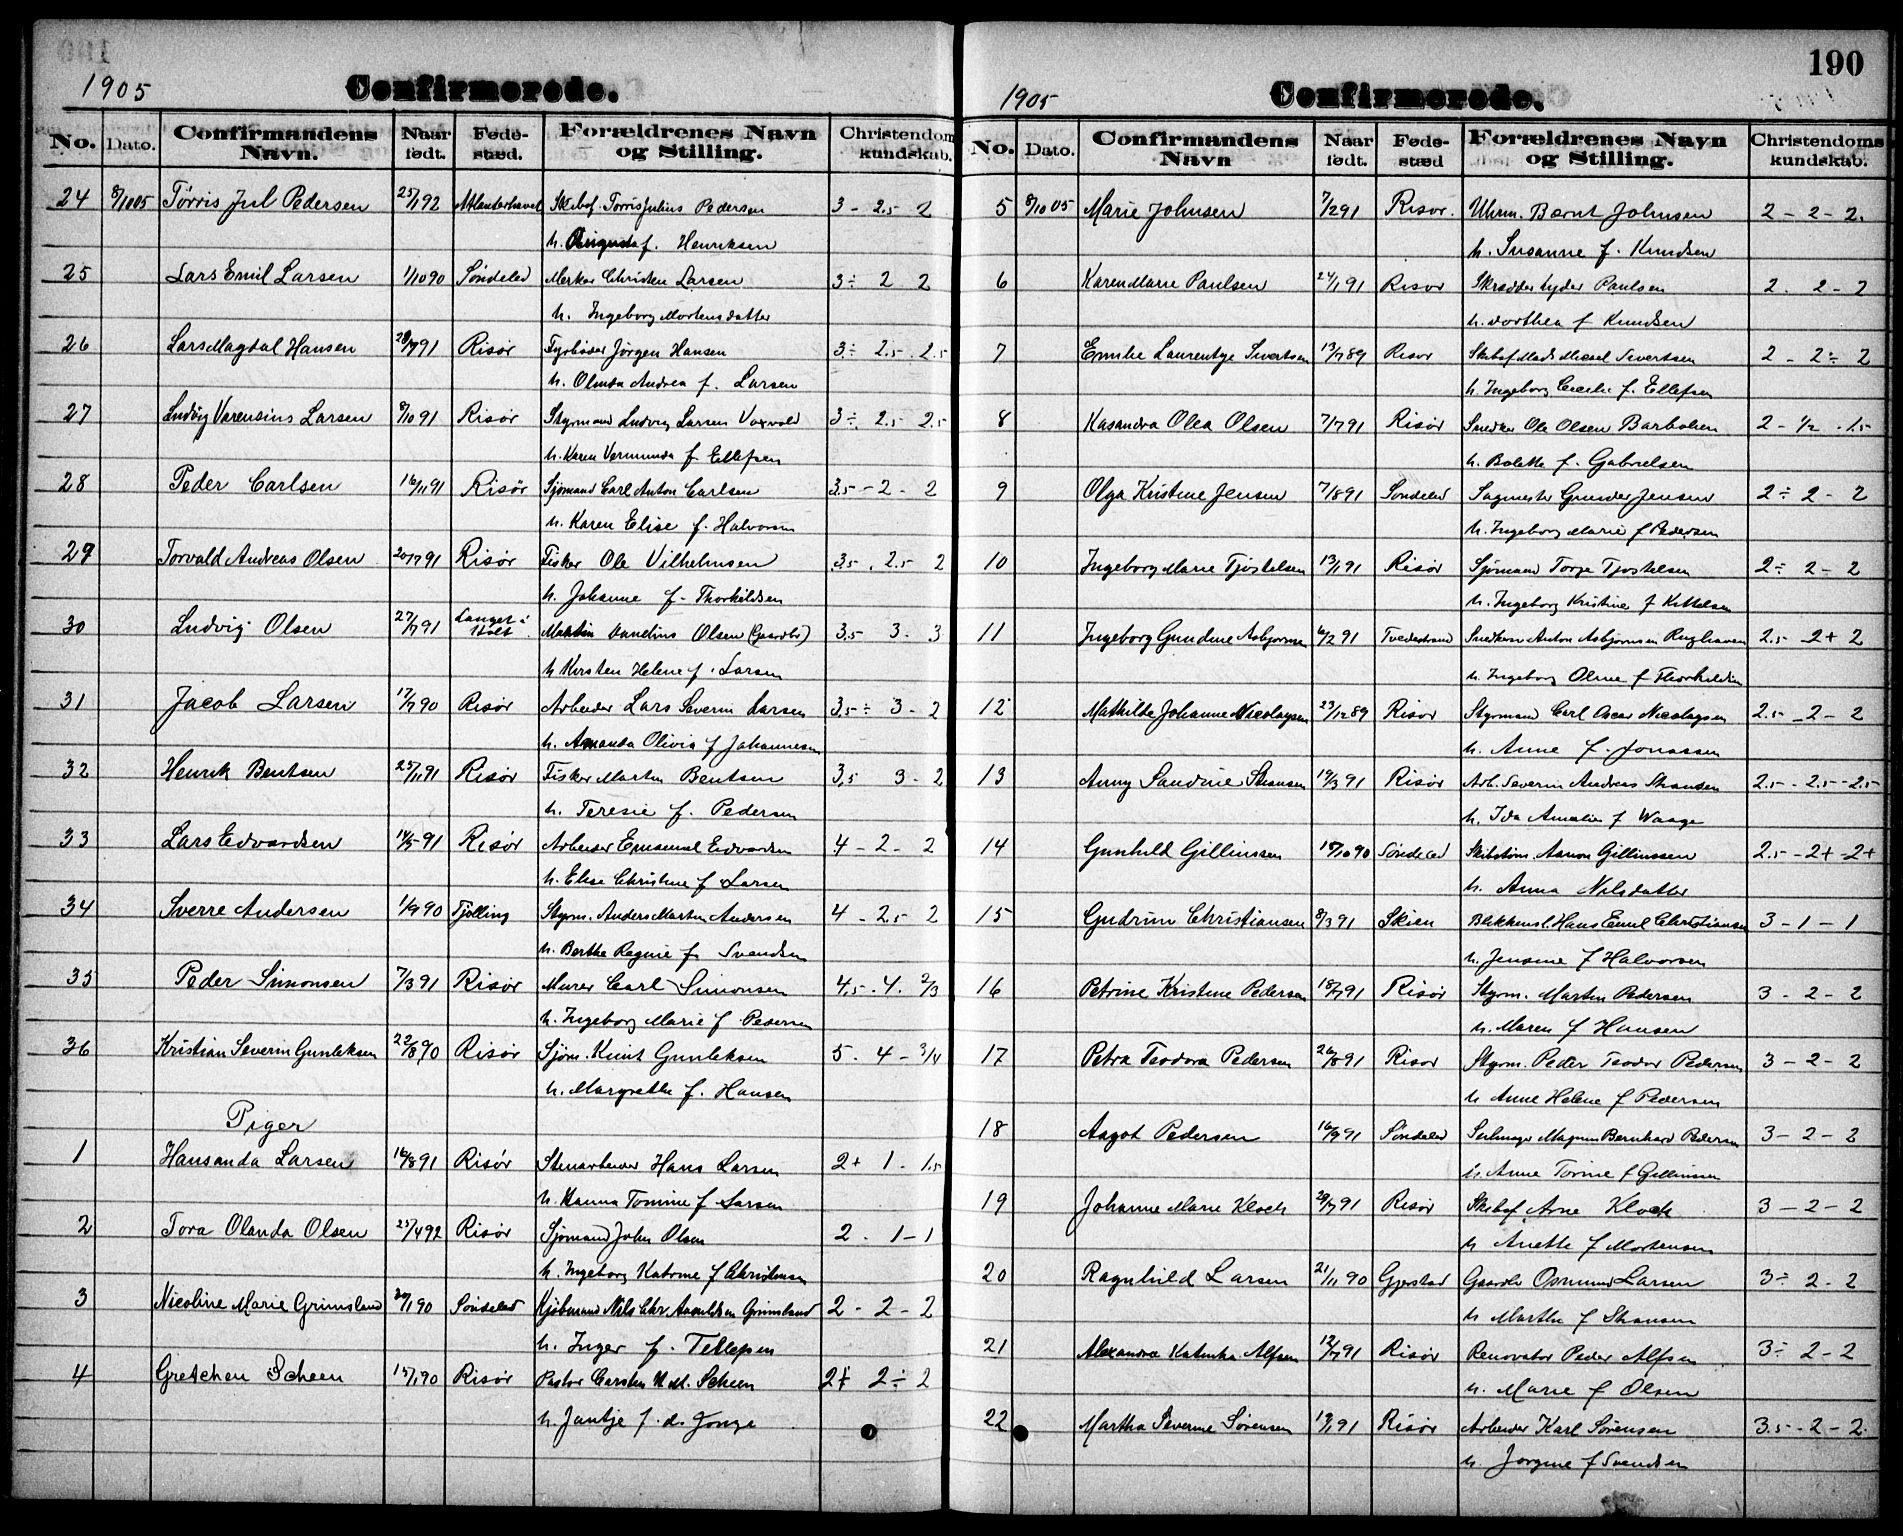 1905
Confirmerede.
No. Dato. Confirmandens Navn. Naar født. Føde-stæd. Forældrenes Navn og Stilling. Christendoms kundskab.
24 8/10 05 Tørris Jul Pedersen 25/1 92 Atlanterhavet Skibsf. Torris Julius Pedersen 3 - 2.5 - 2
h. Augusta f. Henriksen
25 Lars Emil Larsen 1/10 90 Søndeled Christen Larsen 3÷ 2 2
h. Ingeborg Mortensdatter
26 Lars Magdal Hansen 28/7 91 Risør Fyrbøder Jørgen Hansen 3÷ 2.5 - 2.5
h. Olinda Andrea f. Larsen
27 Ludvig Larsen 8/10 91 Risør Styrmand Ludvig Larsen 3÷ 2.5 2.5
h. Karen f. Ellefsen
28 Peder Carlsen 16/11 91 Risør Sjømand Carl Anton Carlsen 3.5 - 2 - 2
h. Karen Elise f. Halvorsen
29 Torvald Andreas Olsen 20/7 91 Risør Fisker Ole Vilhelmsen 3.5 . 2.5 2
h. Johanne f. Thorkildsen
30 Ludvig Olsen 27/7 91 Langet i Holt Martin Olsen 3.5 3 - 3
h Kirsten Helene f. Larsen
31 Jacob Larsen 17/7 90 Risør Arbeider Lars Severin Larsen 3.5÷ 3 - 2
h. Amanda Olivia f Johannesen
32 Henrik Bentsen 25/11 91 Risør Fisker Martin Bentsen 3.5 3 - 2
h. Teresie f. Pedersen
33 Lars Edvardsen 14/5 91 Risør Arbeider Emanuel Edvardsen 4 - 2 - 2
h. Elise Christine f Larsen
34 Sverre Andersen 1/9 90 Tjølling Styrm. Anders Martin Andersen 4 - 2.5 2
h. Berthe Regine f. Svendsen
35 Peder Simonsen 7/3 91 Risør Murer Carl Simonsen 4.5 - 4. 2/3
h. Ingeborg Marie f. Pedersen
36 Kristian Severin Gunleksen 22/8 90 Risør Sjøm. Knut Gunleksen 5 - 4 - 3/4
h. Margrethe f. Hansen
Piger
1 Hansanda Larsen 16/8 91 Risør Stenarbeider Hans Larsen 2+ 1 - 1.5
h. Hanna Tomine f Larsen
2 Tora Olanda Olsen 25/4 92 Risør Sjømand John Olsen 2 - 1 - 1
h. Ingeborg Katrine f Christensen
3 Nicoline Marie Grimsland 30/1 90 Søndeled Kjøbmand Nils Chr. Grimsland 2 - 2 - 2
h. Inger f. Tellefsen
4 Gretchen Scheen 15/1 90 Risør Pastor Carsten Scheen 2+ 2÷ 2
h. Jantje f. de Jonge
190
1905
Confirmerede.
No. Dato. Confirmandens Navn Naar født. Føde-stæd Forældrenes Navn og Stilling. Christendoms kundskab.
5 8/10 05 Marie Johnsen 7/2 91 Risør. Uhrm. Bernt Johnsen 2 - 2 - 2.
h. Susanne f. Knudsen
6 Karen Marie Paulsen 24/1 91 Risør Skrædder Lyder Paulsen 2. 2 - 2
h. Dorthea f Knudsen
7 Emilie Laurentze Sivertsen 13/7 89 Risør Skibsf. Mads Micael Sivertsen 2 - 2÷ 2
h. Ingeborg Cecilie f. Ellefsen
8 Kasandra Olea Olsen 7/7 91 Risør Snedker Ole Olsen 2 - 1/2 - 1.5
h. Bolette f. Gabrielsen
9 Olga Kristine Jensen 7/8 91 Søndeled Sagmester Gunder Jensen 2÷ 2 - 2
h. Ingeborg Marie f Pedersen
10 Ingeborg Marie Tjostelsen 13/1 91 Risør Sjømand Torje Tjostelsen 2÷ 2 - 2
h. Ingeborg Kristine f Kittelsen
11 Ingeborg Gundine Asbjørnsen 6/2 91 Tvedestrand Snedker Anton Asbjørnsen 2.5 - 2+ 2
h. Ingeborg Oline f Thorkildsen
12 Mathilde Johanne Nicolaysen 23/12 89 Risør Styrmand Carl Oscar Nicolaysen 2.5 - 2 - 2
h. Anne f. Jonassen
13 Anny Sandine Stiansen 19/3 91 Risør Arb. Severin Andreas Stiansen 2.5 - 2.5 - 2.5
h. Ida Amalie f Waage
14 Gunhild Gillinssen 15/10 90 Søndeled Skibstøm. Aanon Gillinssen 2.5 - 2+ - 2+
h. Anna Nilsdatter
15 Gudrun Christiansen 8/3 91 Skien Blikkensl. Hans Emil Christiansen 3 - 1 - 1
h. Jensine f Halvorsen
16 Petrine Kristine Pedersen 18/7 91 Risør Styrm. Martin Pedersen 3 - 2 - 2
h. Maren f Hansen
17 Petra Teodora Pedersen 26/8 91 Risør Styrm. Peder Teodor Pedersen 3 - 2 - 2
h Anne Helene f Pedersen
18 Aagot Pedersen 16/9 91 Søndeled Seilmager Magnus Bernhard Pedersen 3 - 2 - 2
h. Anne Torine f Gillinssen
19 Johanne Marie Kloch 29/7 91 Risør Skibsf. Arne Kloch 3 - 2 - 2
h Anette f Mortensen
20 Ragnhild Larsen 21/11 90 Gjerstad Gaardbr. Osmund Larsen 3÷ 2 - 2
h Marthe f Stiansen
21 Alexandra Katinka Alfsen 12/7 91 Risør Renovatør Peder Alfsen 3÷ 2 - 2
h. Marie f Olsen
22 Martha Severine Sørensen 19/1 91 Risør Arbeider Karl Sørensen 3.5 - 2 - 2.
h Jørgine f Svendsen